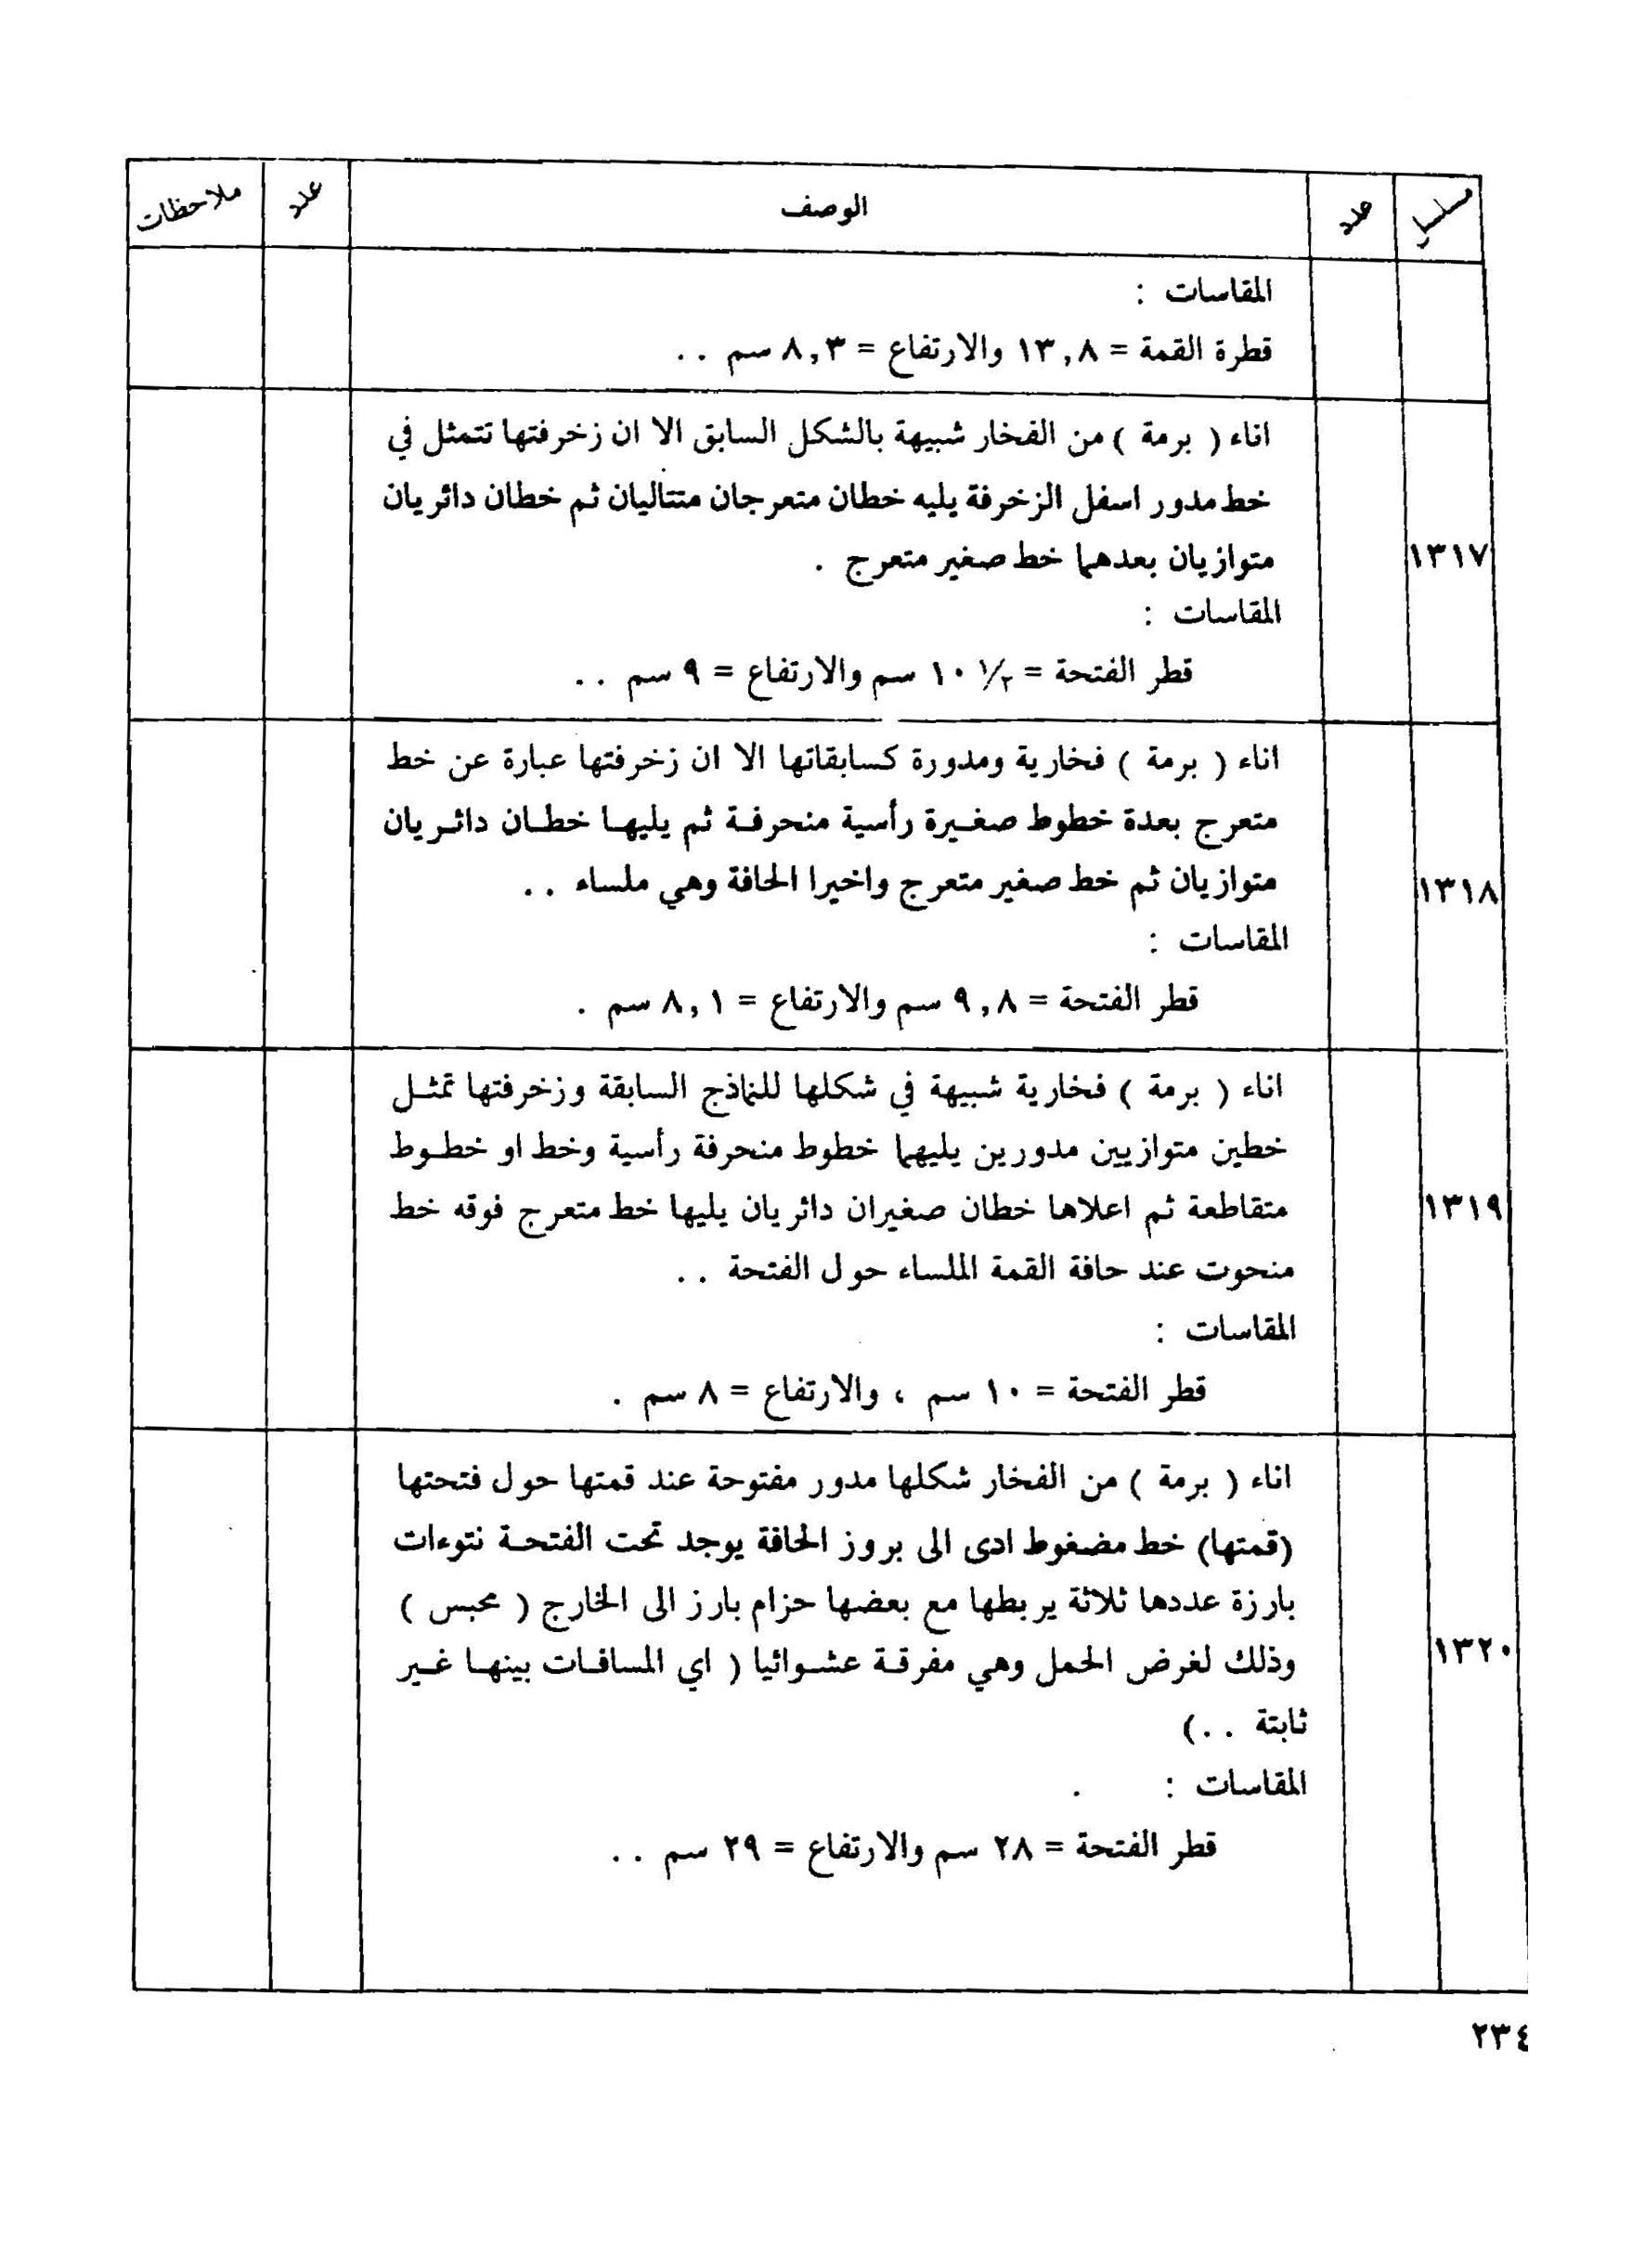 مسلسل عدد الوصف عدد ملاحظات
المقاسات :
قطرة القمة = ١٣,٨ والارتفاع = ٨,٣ سم . .
اناء ( برمة ) من الفخار شبيهة بالشكل السابق الا ان زخرفتها تتمثل في
خط مدور اسفل الزخرفة يليه خطان متعرجان متتاليان ثم خطان دائريان
١٣١٧ متوازيان بعدهما خط صغير متعرج .
المقاسات :
قطر الفتحة = ١/٢ ١٠ سم والارتفاع = ٩ سم . .
اناء ( برمة ) فخارية ومدورة كسابقاتها الا ان زخرفتها عبارة عن خط
متعرج بعدة خطوط صغيرة رأسية منحرفة ثم يليها خطان دائريان
١٣١٨ متوازيان ثم خط صغير متعرج واخيرا الحافة وهي ملساء . .
المقاسات :
قطر الفتحة = ٩,٨ سم والارتفاع = ٨,١ سم .
اناء ( برمة ) فخارية شبيهة في شكلها للنماذج السابقة وزخرفتها تمثل
خطين متوازيين مدورين يليهما خطوط منحرفة رأسية وخط او خطوط
١٣١٩ متقاطعة ثم اعلاها خطان صغيران دائريان يليها خط متعرج فوقه خط
منحوت عند حافة القمة الملساء حول الفتحة . .
المقاسات :
قطر الفتحة = ١٠ سم ، والارتفاع = ٨ سم .
اناء ( برمة ) من الفخار شكلها مدور مفتوحة عند قمتها حول فتحتها
(قمتها) خط مضغوط ادى الى بروز الحافة يوجد تحت الفتحة نتوءات
بارزة عددها ثلاثة يربطها مع بعضها حزام بارز الى الخارج ( محبس )
١٣٢٠ وذلك لغرض الحمل وهي مفرقة عشوائيا ( اي المسافات بينها غير
ثابتة . .)
المقاسات : .
قطر الفتحة = ٢٨ سم والارتفاع = ٢٩ سم . .
٢٣٤